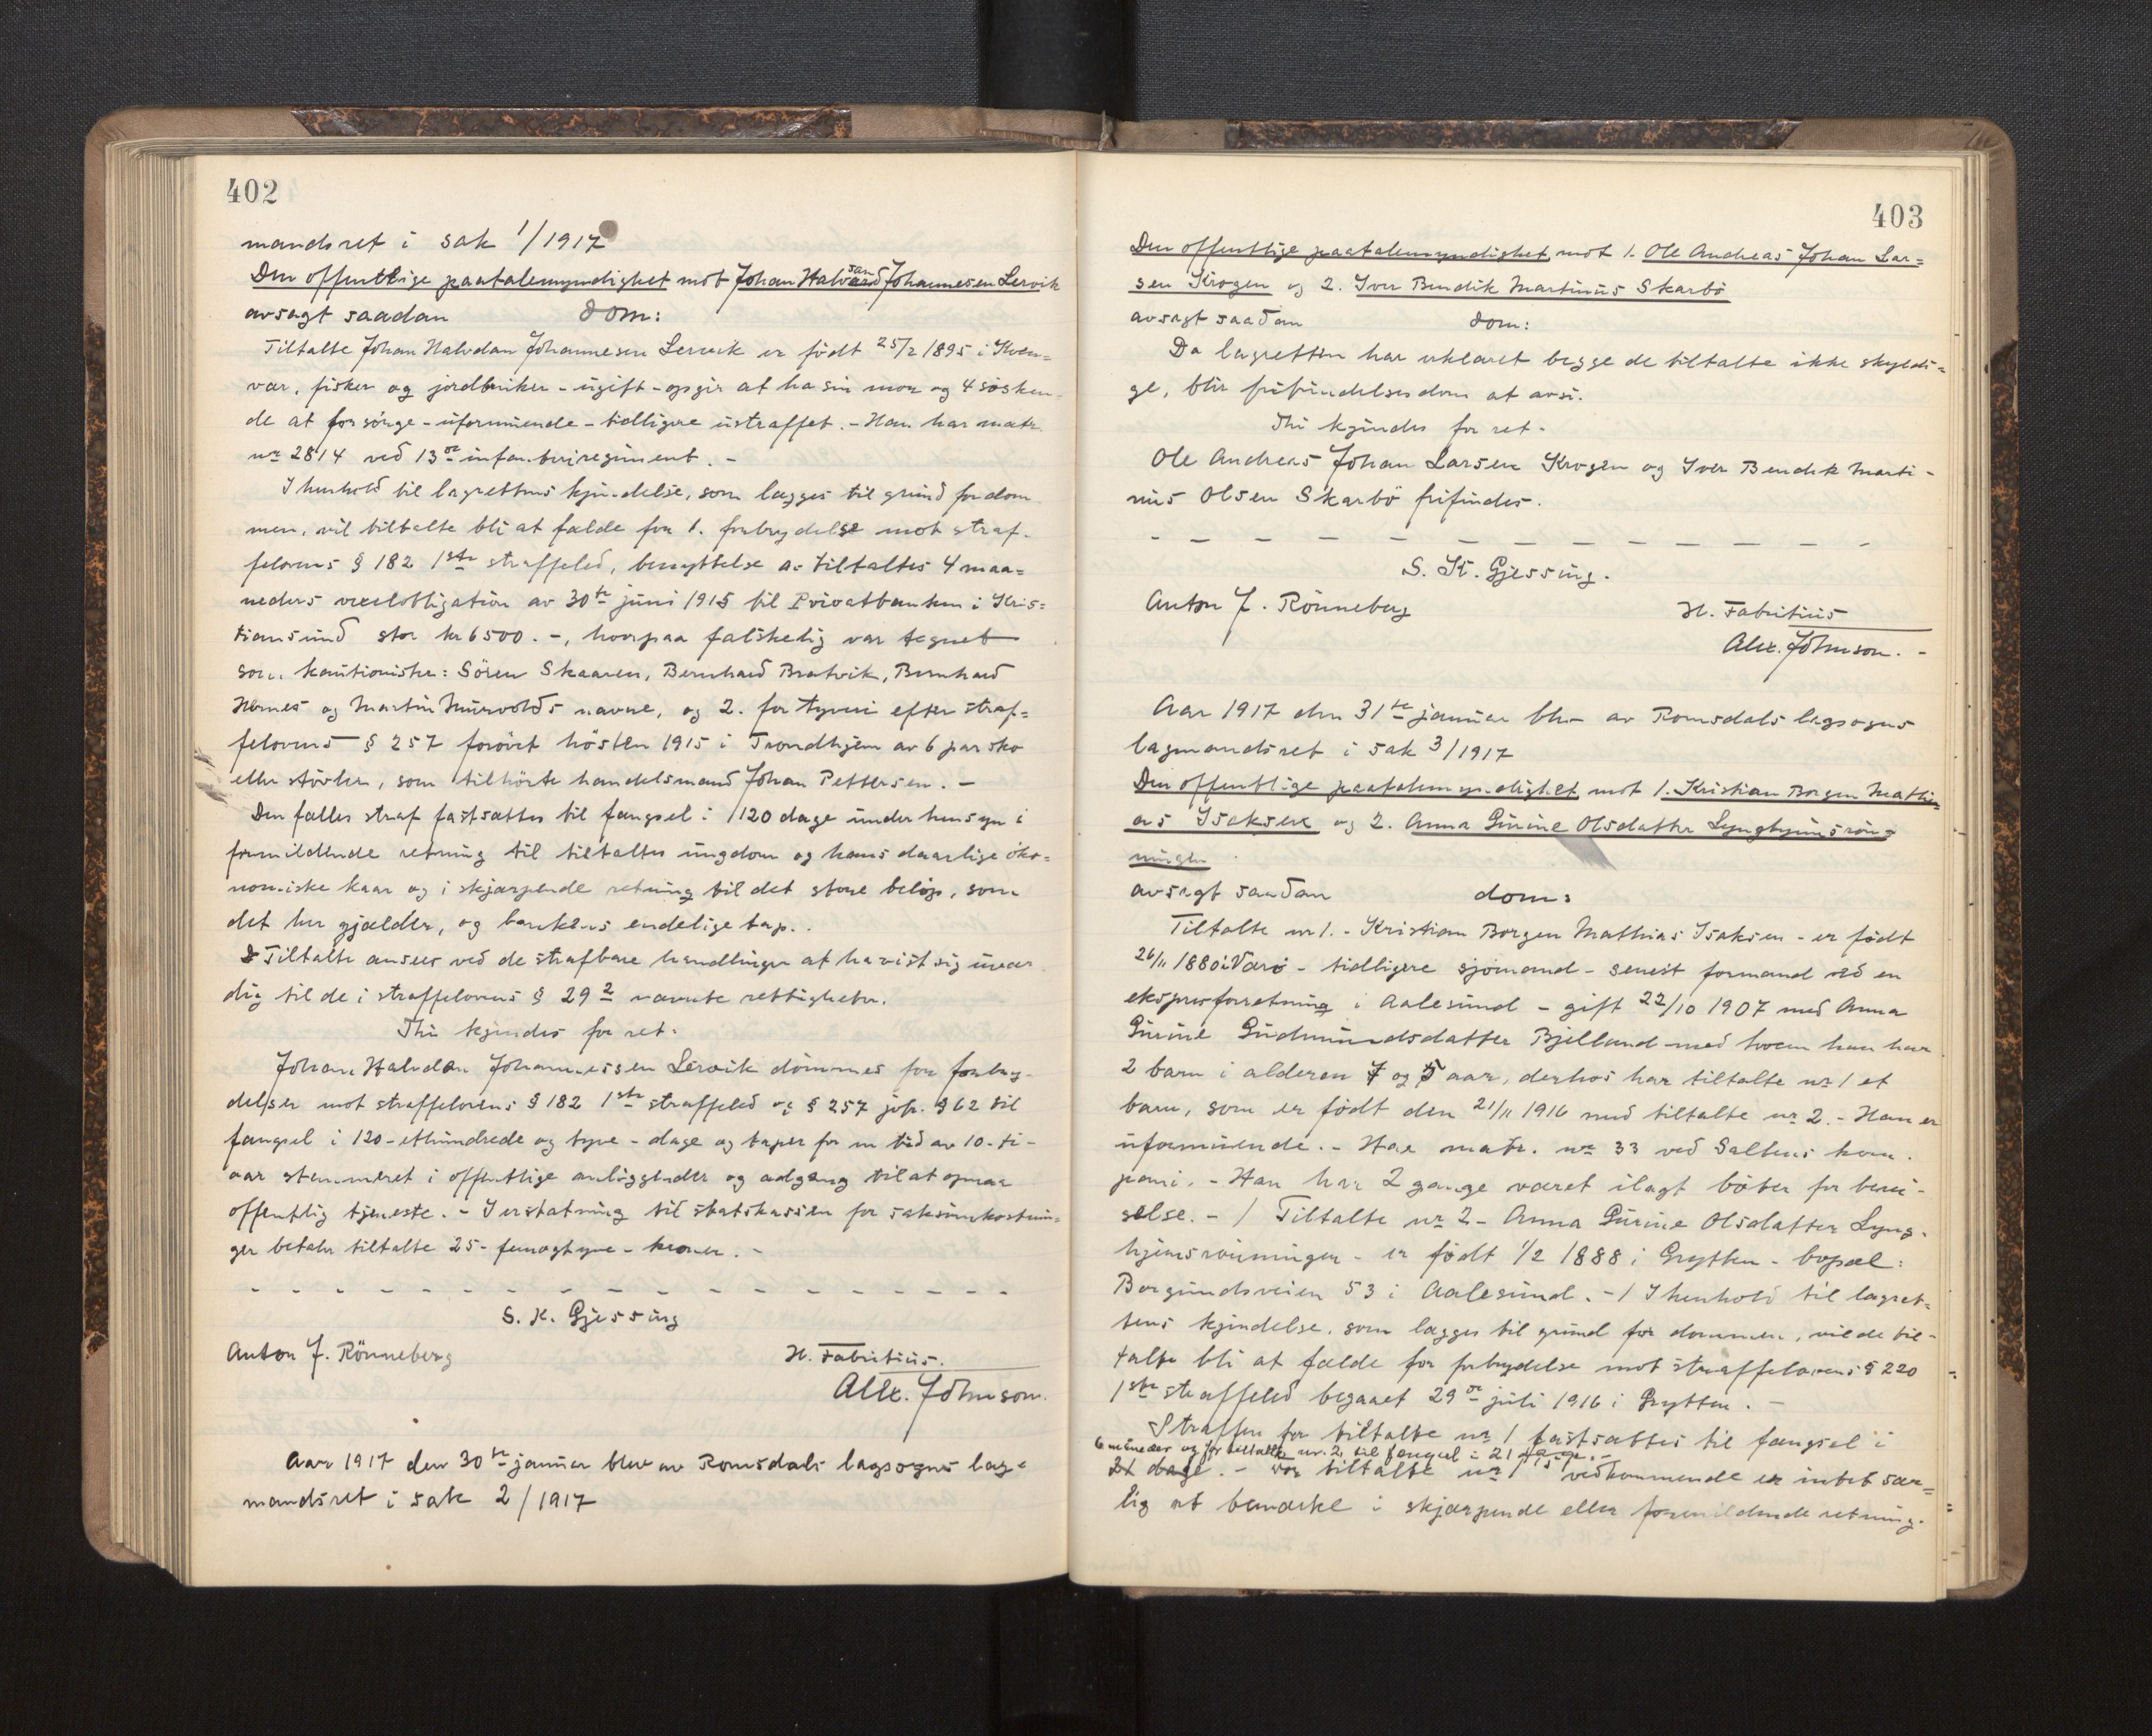 402
mandsret i sak 1/1917
Den offentlige paatalemyndighet mot Johan Halvdan Johannesen Lervik
avsagt saadan dom:
Tiltalte Johan Halvdan Johannesen Lervik er født 25/2 1895 i Kven=
vær, fisker og jordbruker - ugift - opgir at ha sin mor og 4 søsken-
de at forsørge - uformuende - tidligere ustraffet. - Han har matr.
nr 2814 ved 13de infanteriregiment. -
I henhold til lagrettens kjendelse, som lægges til grund for dom-
men, vil tiltalte bli at fælde for 1. forbrydelse mot straf-
felovens § 182 1ste straffeled, benyttelse av tiltaltes 4 maa=
neders vexelobligation av 30te juni 1915 til Privatbanken i Kris=
tiansund stor kr 6500. -, hvorpaa falskelig var tegnet
som kautionister: Sören Skaaren, Bernhard Bratvik, Bernhard
Hernes og Martin Murvolds navne, og 2. for tyveri efter straf=
felovens § 257 forövet hösten 1915 i Trondhjem av 6 par sko
eller støvler, som tilhörte handelsmand Johan Pettersen. -
Den fælles straf fastsættes til fængsel i 120 dage under hensyn i
formildende retning til tiltaltes ungdom og hans daarlige øko=
nomiske kaar og i skjærpende retning til det store beløp, som
det her gjælder, og bankens endelige tap.
Tiltalte ansees ved de strafbare handlinger at ha vist sig uvær
dig til de i straffelovens § 29 2 nævnte rettigheter.
Thi kjendes for ret:
Johan Halvdan Johannessen Lervik dömmes for forbry-
delser mot straffelovens § 182 1ste straffeled og § 257 jvfr. § 62 til
fængsel i 120 - ethundrede og tyve - dage og taper for en tid av 10 - ti -
aar stemmeret i offentlige anliggender og adgang til at opnaa
offentlig tjeneste. - I erstatning til statskassen for saksomkostnin=
ger betaler tiltalte 25 - femogtyve - kroner. -
- - - - - - - - - - - - - - - - - -
S. K. Gjessing
Anton J. Rönneberg H. Fabritius.
Alex. Johnson.
Aar 1917 den 30te januar blev av Romsdals lagsogns lag=
mandsret i sak 2/1917
403
Den offentlige paatalemyndighet mot 1. Ole Andreas Johan Lar=
sen Krogen og 2. Iver Bendik Martinus Skarbö
avsagt saadan dom:
Da lagretten har erklæret begge de tiltalte ikke skyldi=
ge, blir frifindelsesdom at avsi.
Thi kjendes for ret:
Ole Andreas Johan Larsen Krogen og Iver Bendik Marti-
nus Olsen Skarbö frifindes.
- - - - - - - - - - - - - -
S. K. Gjessing.
Anton J. Rönneberg H. Fabritius
Alex. Johnson. -
Aar 1917 den 31te januar blev av Romsdals lagsogns
lagmandsret i sak 3/1917
Den offentlige paatalemyndighet mot 1. Kristian Borgen Mathi
as Isaksen og 2. Anna Gurine Olsdatter Lynghjemsrön=
ningen
avsagt saadan dom:
Tiltalte nr 1. - Kristian Borgen Mathias Isaksen - er født
26/11 1880 i Værø - tidligere sjømand - senest formand ved en
ekspresforretning i Aalesund - gift 22/10 1907 med Anna
Gurine Gudmundsdatter Bjelland med hvem han har
2 barn i alderen 7 og 5 aar, derhos har tiltalte nr 1 et
barn, som er født den 21/11 1916 med tiltalte nr 2. - Han er
uformuende. - Har matr. nr 33 ved Saltens kom-
pani. - Han har 2 gange været ilagt böter for beru-
selse. - / Tiltalte nr 2 - Anna Gurine Olsdatter Lyng-
hjemsrönningen - er født 1/2 1888 i Grytten - bopæl:
Borgundsveien 53 i Aalesund. - / I henhold til lagret=
tens kjendelse, som lægges til grund for dommen, vil de til-
talte bli at fælde for forbrydelse mot straffelovens § 220
1ste straffeled begaaet 29de juli 1916 i Grytten. -
Straffen for tiltalte nr 1 fastsættes til fængsel i
6 maaneder og for tiltalte nr. 2 til fængsel i 21 dage. -
21 dage. - For tiltalte nr 1's vedkommende er intet sær=
lig at bemærke i skjærpende eller formildende retning.